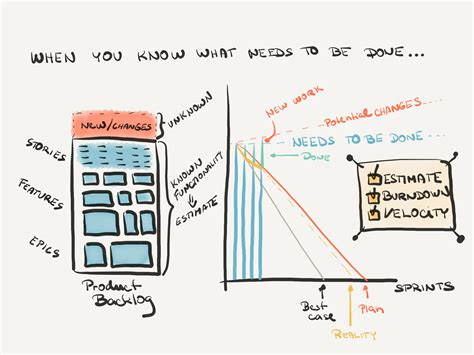 WHEN YOU KNOW WHAT NEEDS TO BE DONE...
NEW/CHANGES
UNKNOWN
STORIES
FEATURES
EPICS
KNOWN
FUNCTIONALITY
ESTIMATE
Product
Backlog
NEW WORK
Potential CHANGES...
NEEDS TO BE DONE...
Done
ESTIMATE
BURNDOWN
VELOCITY
SPRINTS
Best
case
REALITY
Plan